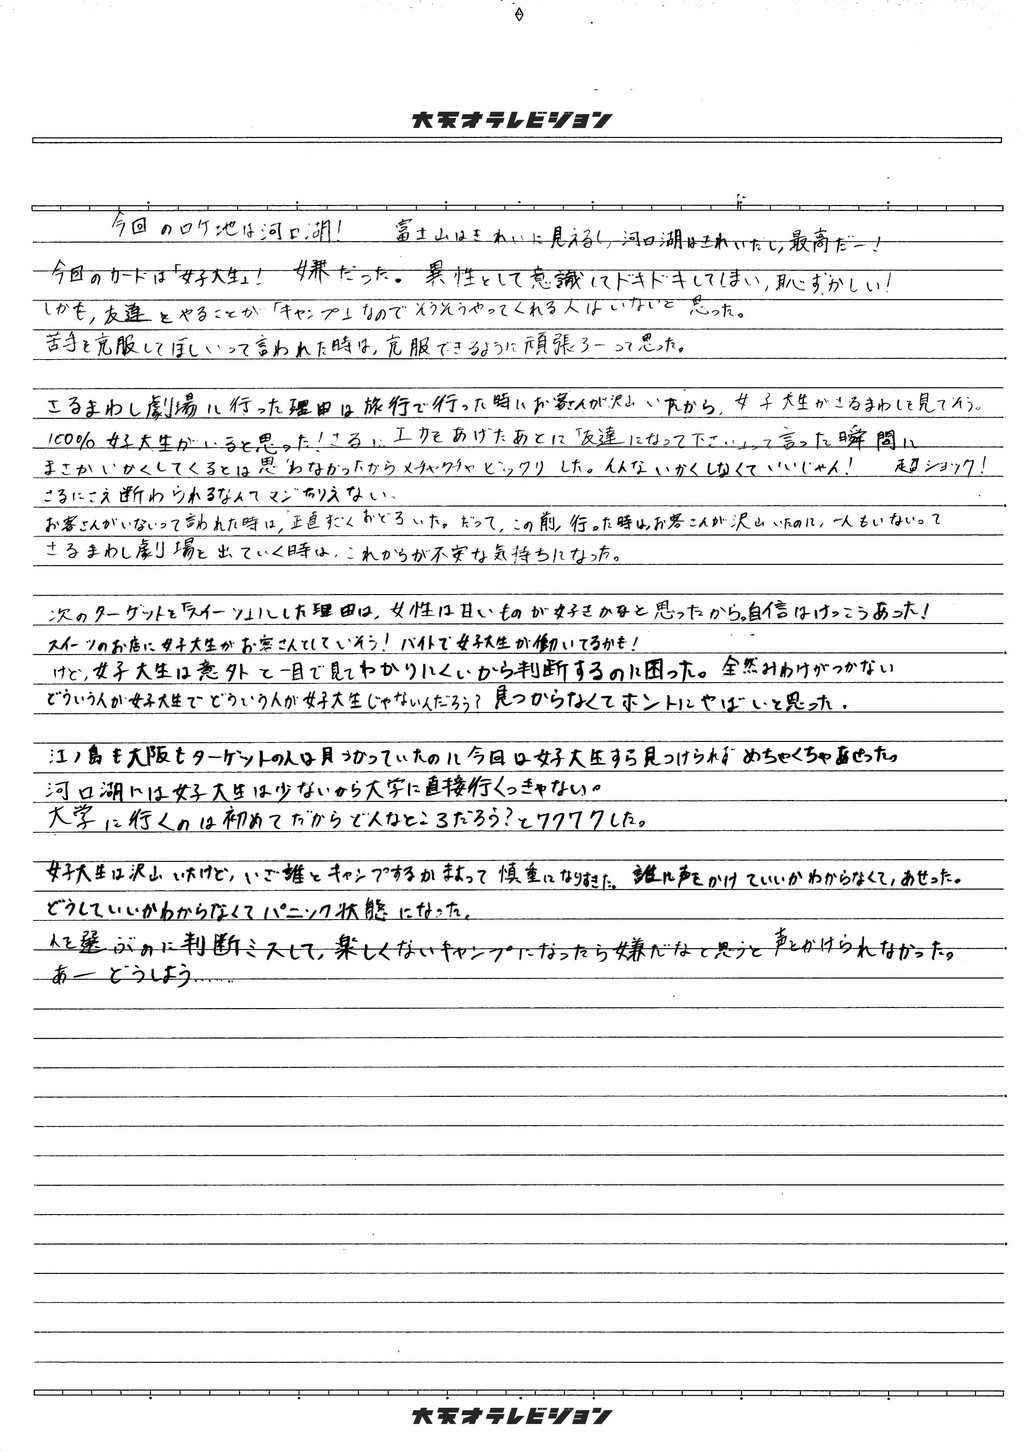 大天才テレビジョン
今回のロケ地は河口湖! 富士山はきれいに見えるし、河口湖はきれいだし、最高だー!
今回のカードは「女子大生」! 嫌だった。異性として意識してドキドキしてしまい、恥ずかしい!
しかも、友達とやることが「キャンプ」なのでそうそうやってくれる人はいないと思った。
苦手を克服してほしいって言われた時は、克服できるように頑張ろーって思った。
さるまわし劇場に行った理由は旅行で行った時にお客さんが沢山いたから、女子大生がさるまわしを見てそう。
100% 女子大生がいると思った!さるにエサをあげたあとに「友達になって下さい」って言った瞬間に
まさかいかくしてくるとは思わなかったからメチャクチャビックリした。そんないかくしなくていいじゃん! 超ショック!
さるにさえ断わられるなんてマジありえない。
お客さんがいないって言われた時は、正直すごくおどろいた。だって、この前、行った時はお客さんが沢山いたのに、一人もいないって
さるまわし劇場を出ていく時は、これからが不安な気持ちになった。
次のターゲットを「スイーツ」にした理由は、女性は甘いものが好きかなと思ったから。自信はけっこうあった!
スイーツのお店に女子大生がお客さんとしていそう! バイトで女子大生が働いてるかも!
けど、女子大生は意外と一目で見てわかりにくいから判断するのに困った。全然みわけがつかない
どういう人が女子大生でどういう人が女子大生じゃないんだろう? 見つからなくてホントにやばいと思った。
江ノ島も大阪もターゲットの人は見つかっていたのに今回は女子大生すら見つけられずめちゃくちゃあせった。
河口湖には女子大生は少ないから大学に直接行くっきゃない。
大学に行くのは初めてだからどんなところだろう?とワクワクした。
女子大生は沢山いたけど、いざ誰とキャンプするかまよって慎重になりすぎた。誰に声をかけていいかわからなくて、あせった。
どうしていいかわからなくてパニック状態になった。
人を選ぶのに判断ミスして、楽しくないキャンプになったら嫌だなと思うと声をかけられなかった。
あー どうしよう......
大天才テレビジョン